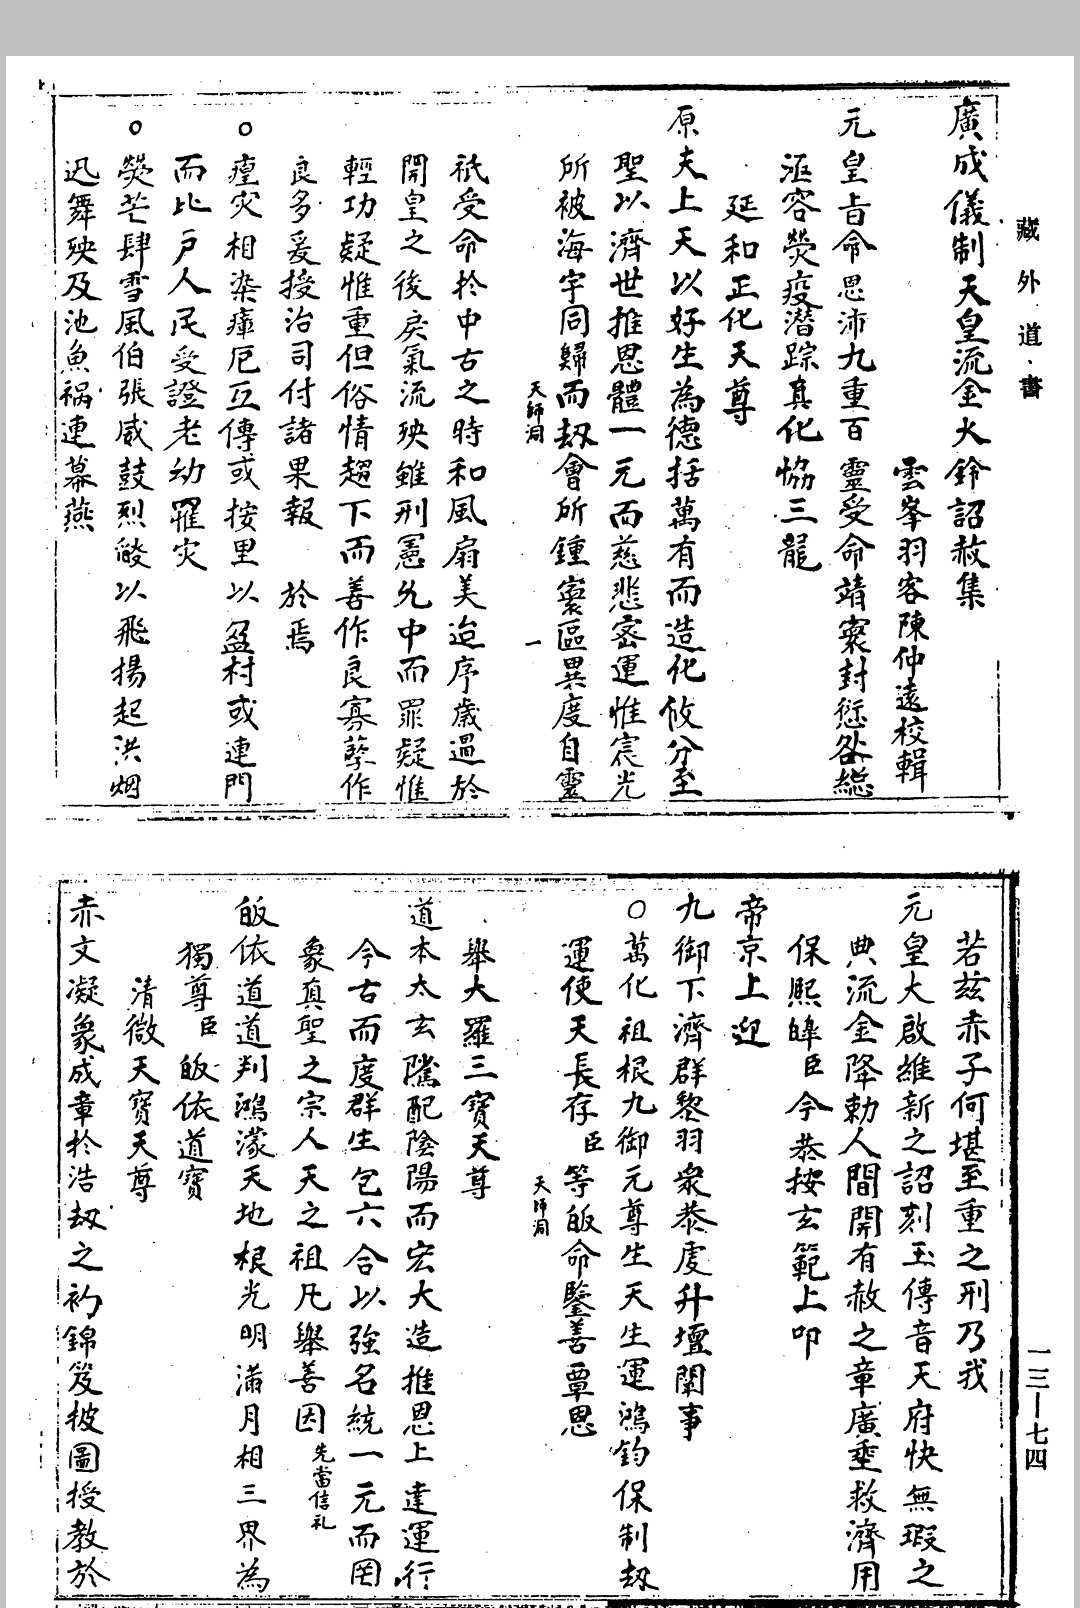 藏外道書
廣成儀制天皇流金火鈴詔赦集
雲峯羽客陳仲遠校輯
元皇旨命恩沛九重百靈受命靖寰封愆咎総
洭容熒疫潛踪真化恊三龍
延和正化天尊
原夫上天以好生為德括萬有而造化攸分至
聖以濟世推恩體一元而慈悲密運惟宸光
所被海宇同歸而刼會所鍾寰區異度自靈
天師洞 一
祇受命於中古之時和風扇美迨序歲過於
開皇之後戾氣流殃雖刑憲允中而罪疑惟
輕功疑惟重但俗情趨下而善作良寡孽作
良多爰授治司付諸果報 於焉
○瘟灾相染瘴厄互傳或按里以盈村或連門
而比户人民受證老幼罹灾
○熒芒肆雪風伯張威鼓烈燄以飛揚起洪烟
迅舞殃及池魚禍連幕燕
若茲赤子何堪至重之刑乃我
元皇大啟維新之詔刻玉傳音天府快無瑕之
典流金降勅人間開有赦之章廣垂救濟用
保熙皞臣今恭按玄範上叩
帝京上迎
九御下濟群黎羽衆恭虔升壇闡事
○萬化祖根九御元尊生天生運鴻鈞保制刼
運使天長存臣等皈命鑒善覃恩
天師洞
舉大羅三寳天尊
道本太玄隲配陰陽而宏大造推恩上達運行
今古而度群生包六合以強名統一元而罔
象真聖之宗人天之祖凡舉善因先當信礼
皈依道道判鴻濛天地根光明滿月相三界為
獨尊臣皈依道寳
清微天寳天尊
赤文凝象成章於浩刼之初錦笈披圖授教於
一三—七四